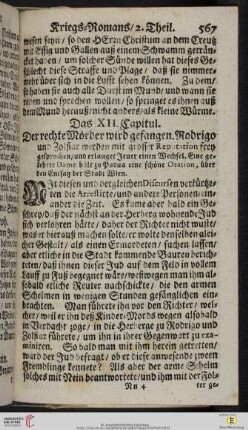 Kriegs-Romans/2. Theil. 567
wesen seyn/ so den HErrn Christum an dem Creutz
mit Essig und Gallen auß einem Schwamm geträn-
cket haben/ um solcher Sünde willen hat dieses Ge-
schlecht diese Straffe und Plage/ daß sie nimmer-
mehr über sich in die Lufft sehen können. Zu dem/
so haben sie auch alle Durst im Mund/ und wann sie
reden und sprechen wollen/ so springet es ihnen auß
dem Mund herauß/nicht anders/ als kleine Würme.
Das XLI. Capitul.
Der rechte Mörder wird gefangen. Rodrigo
und Zolfiar werden mit grosser Reputation frey
gesprochen/ und erlanget Jener einen Wechsel. Eine ge-
lehrte Dame hält zu Padua eine schöne Oration, über
den Entsatz der Stadt Wien.
MIt diesen und dergleichen Discursen verkürtzte-
ten die Arrestirte/ und andere Personen/ im
ander die Zeit. Es kame aber bald ein Ge-
schrey/daß der nächst an der Herberg wohnende Jud
sich verlohren hätte/ daher der Richter nicht wuste/
was er herauß machen solte; er wolte denselben aller
suchen/ laffen/
aber etliche in die Stadt kommende Bauren berich-
teten/ daß ihnen dieser Jud auf dem Feld in vollem
Lauff zu Fuß begegnet wäre/weßwegen man ihm als-
sobald etliche Reuter nachschickte/ die den armen
Schelmen in wenigen Stunden gefänglichen ein-
brachten. Man führete ihn vor den Richter/ wel-
cher/ weil er ihn deß Kinder-Mords wegen alsobald
in Verdacht zoge/ in die Herberge zu Rodrigo und
Zolfiar führete/ um ihn in ihrer Gegenwart zu exa-
miniren. So bald man mit ihm herein getretten/
ward der Jud befragt/ ob er diese anwesende zween
Fremdlinge kennete? Als aber der arme Schelm
solches mit Nein beantwortete/ und ihm mit der Fol-
Nn 4 ter ge-